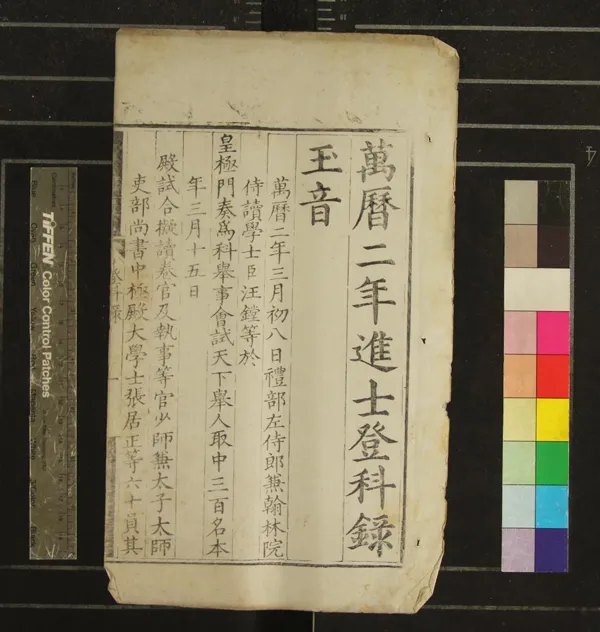 萬曆二年進士登科錄
玉音
萬曆二年三月初八日禮部左侍郎兼翰林院
侍讀學士臣汪鏜等於
皇極門奏爲科舉事會試天下舉人取中三百名本
年三月十五日
殿試合擬讀卷官及執事等官少師兼太子太師
吏部尚書中極殿大學士張居正等六十員其
登科錄
一
TIFFEN Color Control Patches